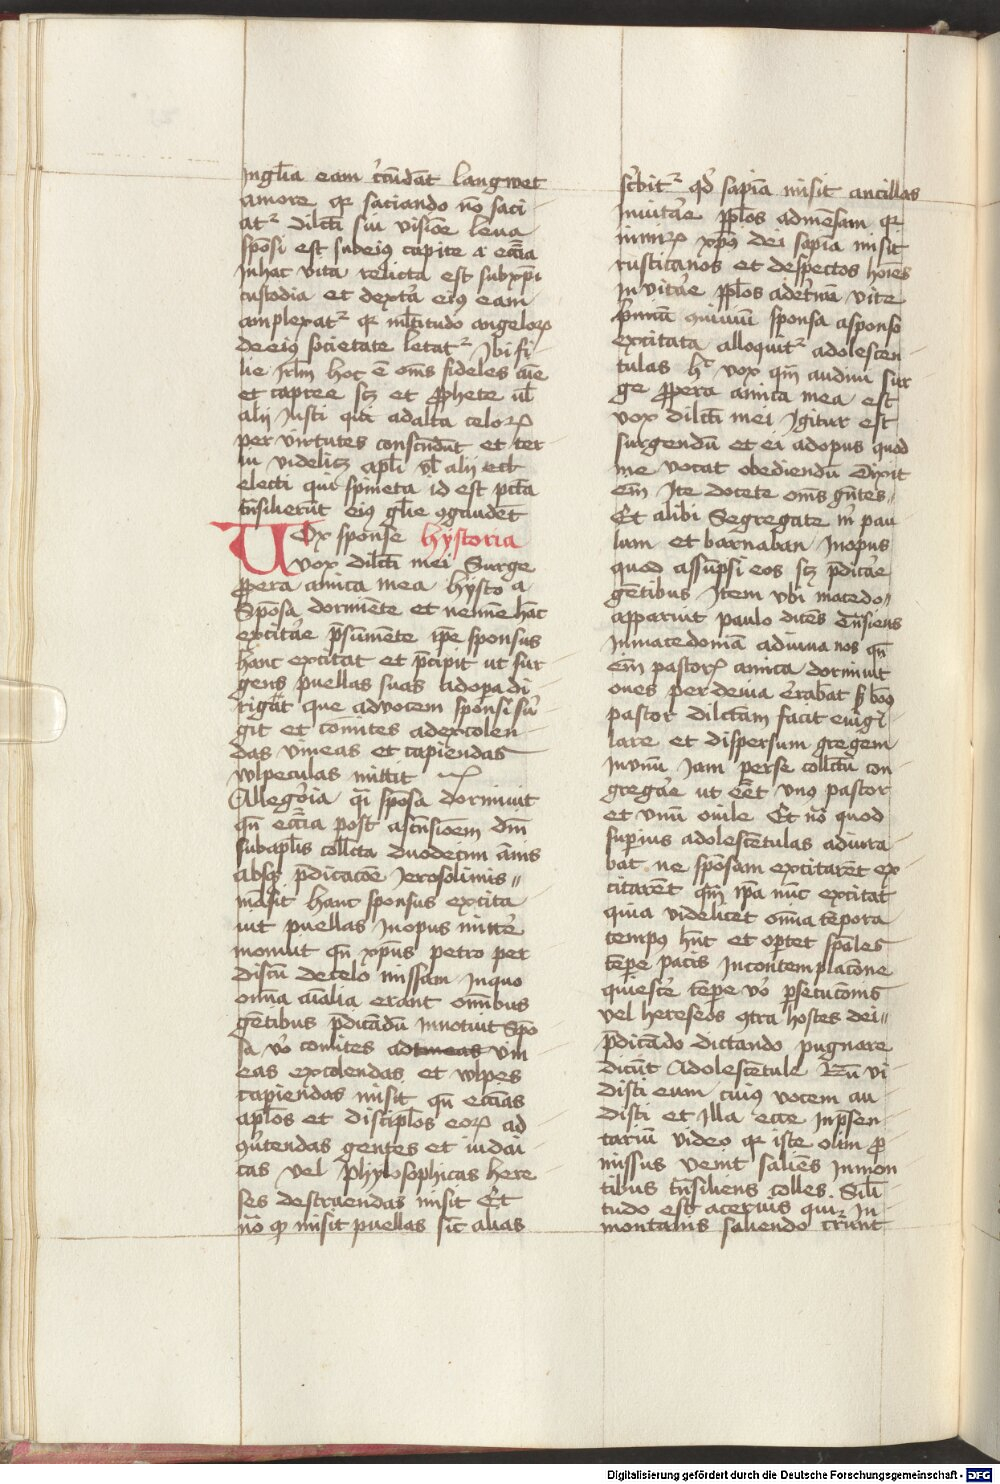 Inglīa eam cc̄ūdāt langwet
amore qr saciando nō saci
at᷑ dilcti sui visiōe leua
sponsi est sub eiꝰ capite a ecc̄ia
In hac vita relicta est sub xp̄i
custodia et dext̄a eiꝰ eam
amplexat᷑ qr ml̄titudo angeloꝝ
de eiꝰ societate letat᷑ Ibi fi
lie Jrlm hoc ē om̄s fideles aīe
et capree scꝫ et ꝓphete ul̄
alij Iusti qui ad alta celoꝝ
per virtutes conscēdūt et cer
ui videlicꝫ apl̄i vl̄ alij eccl̄
electi qui spineta id est pctā
trāsilierūt eiꝰ gl̄ie ꝯgaudēt
Uox sponse Hystoria
vox dilcti mei Surge
ꝓpera amica mea Hysto a
Spōsa dormiēte et nemīe hāc
excitāe p̄sūmēte ipē sponsus
hanc excitat et p̄cipit ut sur
gens puellas suas ad opa di
rigat que ad vocem sponsi sur
git et comites ad excolen
das vineas et capiendas
wlpeculas mittit
Allegoria qn̄ spōsa dormiuit
qn̄ ecc̄ia post ascēsiōem dn̄i
sub apl̄is collcta duodecim annis
absqꝫ p̄dicacōe Jerosolimis
māsit hanc sponsus excita
uit puellas In opus mitte
monuit qn̄ xp̄us petro per
discū de celo missam In quo
om̄ia aīalia erant om̄ibus
gētibus p̄dicādū innotuit Spō
sa vō comites ad vineas vin
eas excolendas et wlpes
capiendas misit qn̄ ecc̄ias
apl̄os et discipl̄os eoꝝ ad
ꝯuertendas gentes et iudai
cas vel phylosophicas here
ses destruendas misit Et
nō qꝫ misit puellas sic alias
scbit᷑ qd sapīa misit ancillas
Inuitāe ppl̄os ad mēsam qr
nimiꝝ xpōs dei sapīa misit
rusticanos et despectos hoīes
In vitae ppl̄os ad et̄nā vite
p̄mīa ꝯuiuiū sponsa a sponso
excitata alloquit᷑ adolescen
tulas hc̄ vox qm̄ audiui sur
ge ꝓpera amica mea est
vox dilcti mei Igitur est
surgendū et ei ad opus quod
me vocat obediendū Dixit
em̄ Ite docete om̄s gētes
Et alibi Segregate m̄ pau
lum et barnaban In opus
quod assūpsi eos scꝫ p̄dicāe
gētibus Item vbi macedo
apparuit paulo dicēs trāsiens
In macedoniā adiuua nos qn̄
em̄ pastoꝝ amica dormiuit
oues per deuia erabāt sꝫ bōꝰ
pastor dilctam facit euigi
lare et dispersum gregem
In vnū Jam per se collctū con
gregāe ut eēt vnꝰ pastor
et vnū ouile Et nō quod
superius adolescētulas adiura
bat ne spōsam excitarēt ex
citarēt qm̄ ip̄a nūc excitat
quia videlicet om̄ia tēpora
tempꝰ hn̄t et oportet spāles
tēpe pacis In contemplacōne
quiescē tēpe vō ꝑsecucōnis
vel hereseos ꝯtra hostes dei
p̄dicādo dictando pugnare
dicūt Adolescētule Nū vi
disti eum cuiꝰ vocem au
disti et Illa ecce In p̄sen
tariū video qr iste olim ꝓ
missus venit saliēs In mon
tibus trāsiliens colles. Sili
tudo est aceruis qui In
montanis saliendo c̄runt
Digitalisierung gefördert durch die Deutsche Forschungsgemeinschaft - DFG